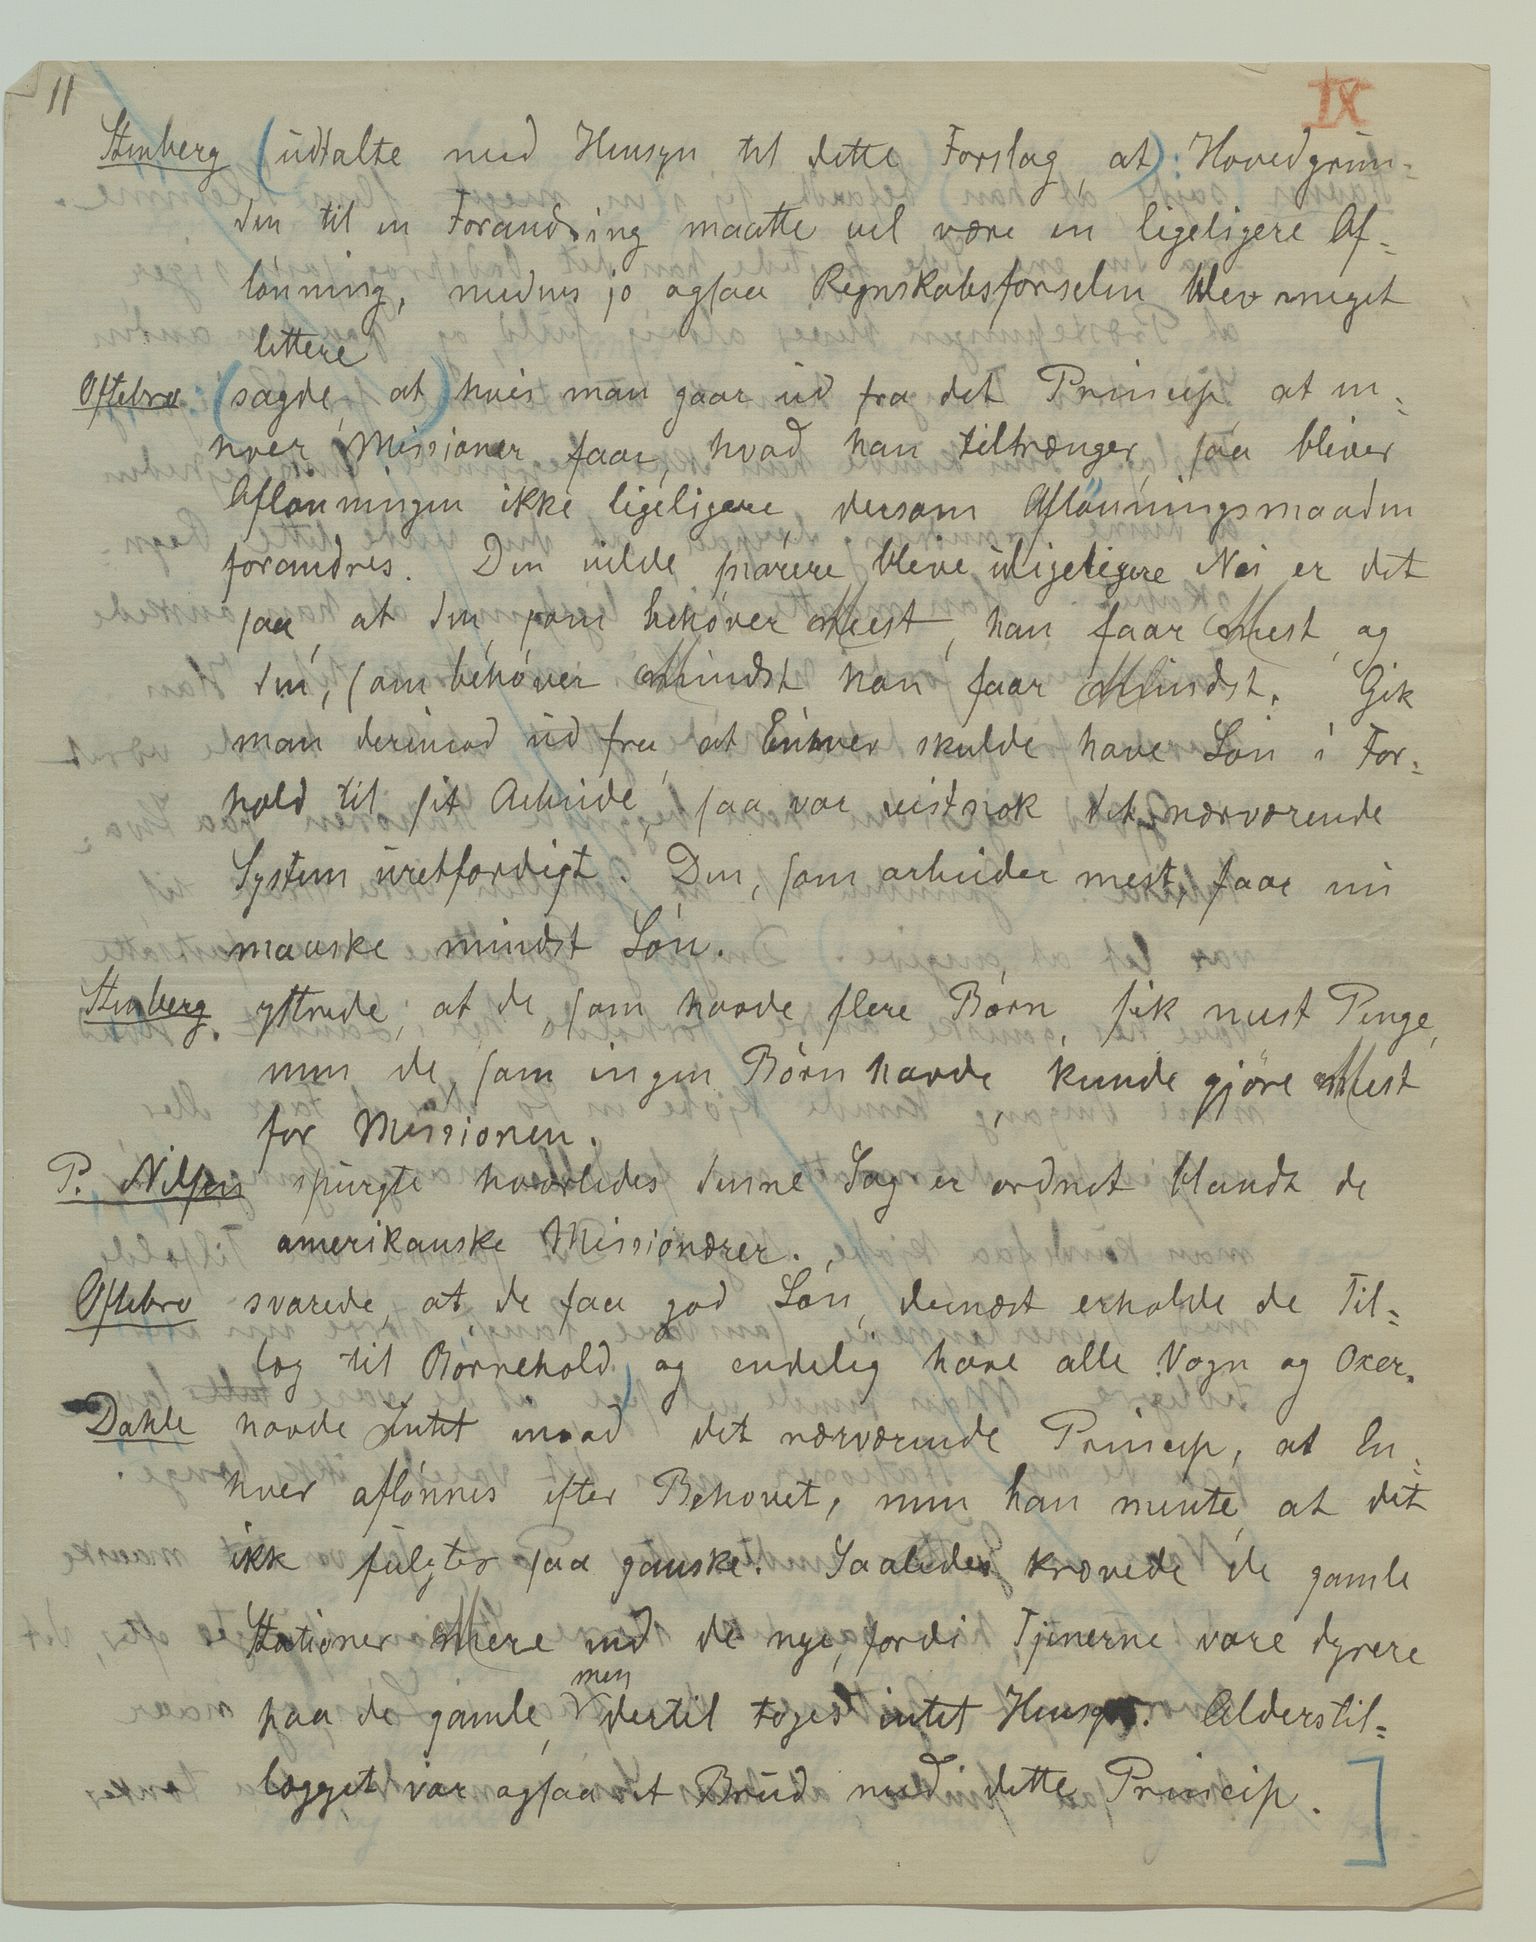 11
IX
Stenberg (udtalte med Hensyn til dette Forslag, at): Hovedgrun-
den til en Forandring maatte vel være en ligeligere Af-
lønning, medens jo ogsaa Regnskabsførselen blev meget
lettere
Oftebro: (sagde, at) hvis man gaar ud fra det Princip, at en-
hver Missionær faar, hvad han tiltrænger, saa bliver
Aflønningen ikke ligeligere, dersom Aflønningsmaaden
forandres. Den vilde snarere bleve uligeligere Nei er det
saa, at den, som behøver Meest, han faar Mest, og
den, som behøver Mindst han faar Mindst. Gik
man derimod ud fra, at Enhver skulde have Løn i For-
hold til sit Arbeide, saa var vistnok det nærværende
System uretfærdigt. Den, som arbeider mest, faar nu
maaske mindst Løn.
Stenberg. yttrede, at de, som havde flere Børn, fik mest Penge,
men de, som ingen Børn havde, kunde gjöre Mest
for Missionen.
P. Nilsen spurgte hvorledes denne Sag er ordnet blandt de
amerikanske Missionærer.
Oftebro svarede, at de faa god Løn, dernæst erholde de Til-
læg til Børnehold, og endelig have alle Vogn og Oxer.
Dahle havde Intet imod det nærværende Princip, at En-
hver aflønnes efter Behovet, men han mente, at det
ikk fulgtes saa ganske. Saaledes krævede de gamle
Stationer Mere end de nye, fordi Tjenerne vare dyrere
men
paa de gamle, dertil toges intet Hensyn. Alderstil-
lægget var ogsaa et Brud med dette Princip.]